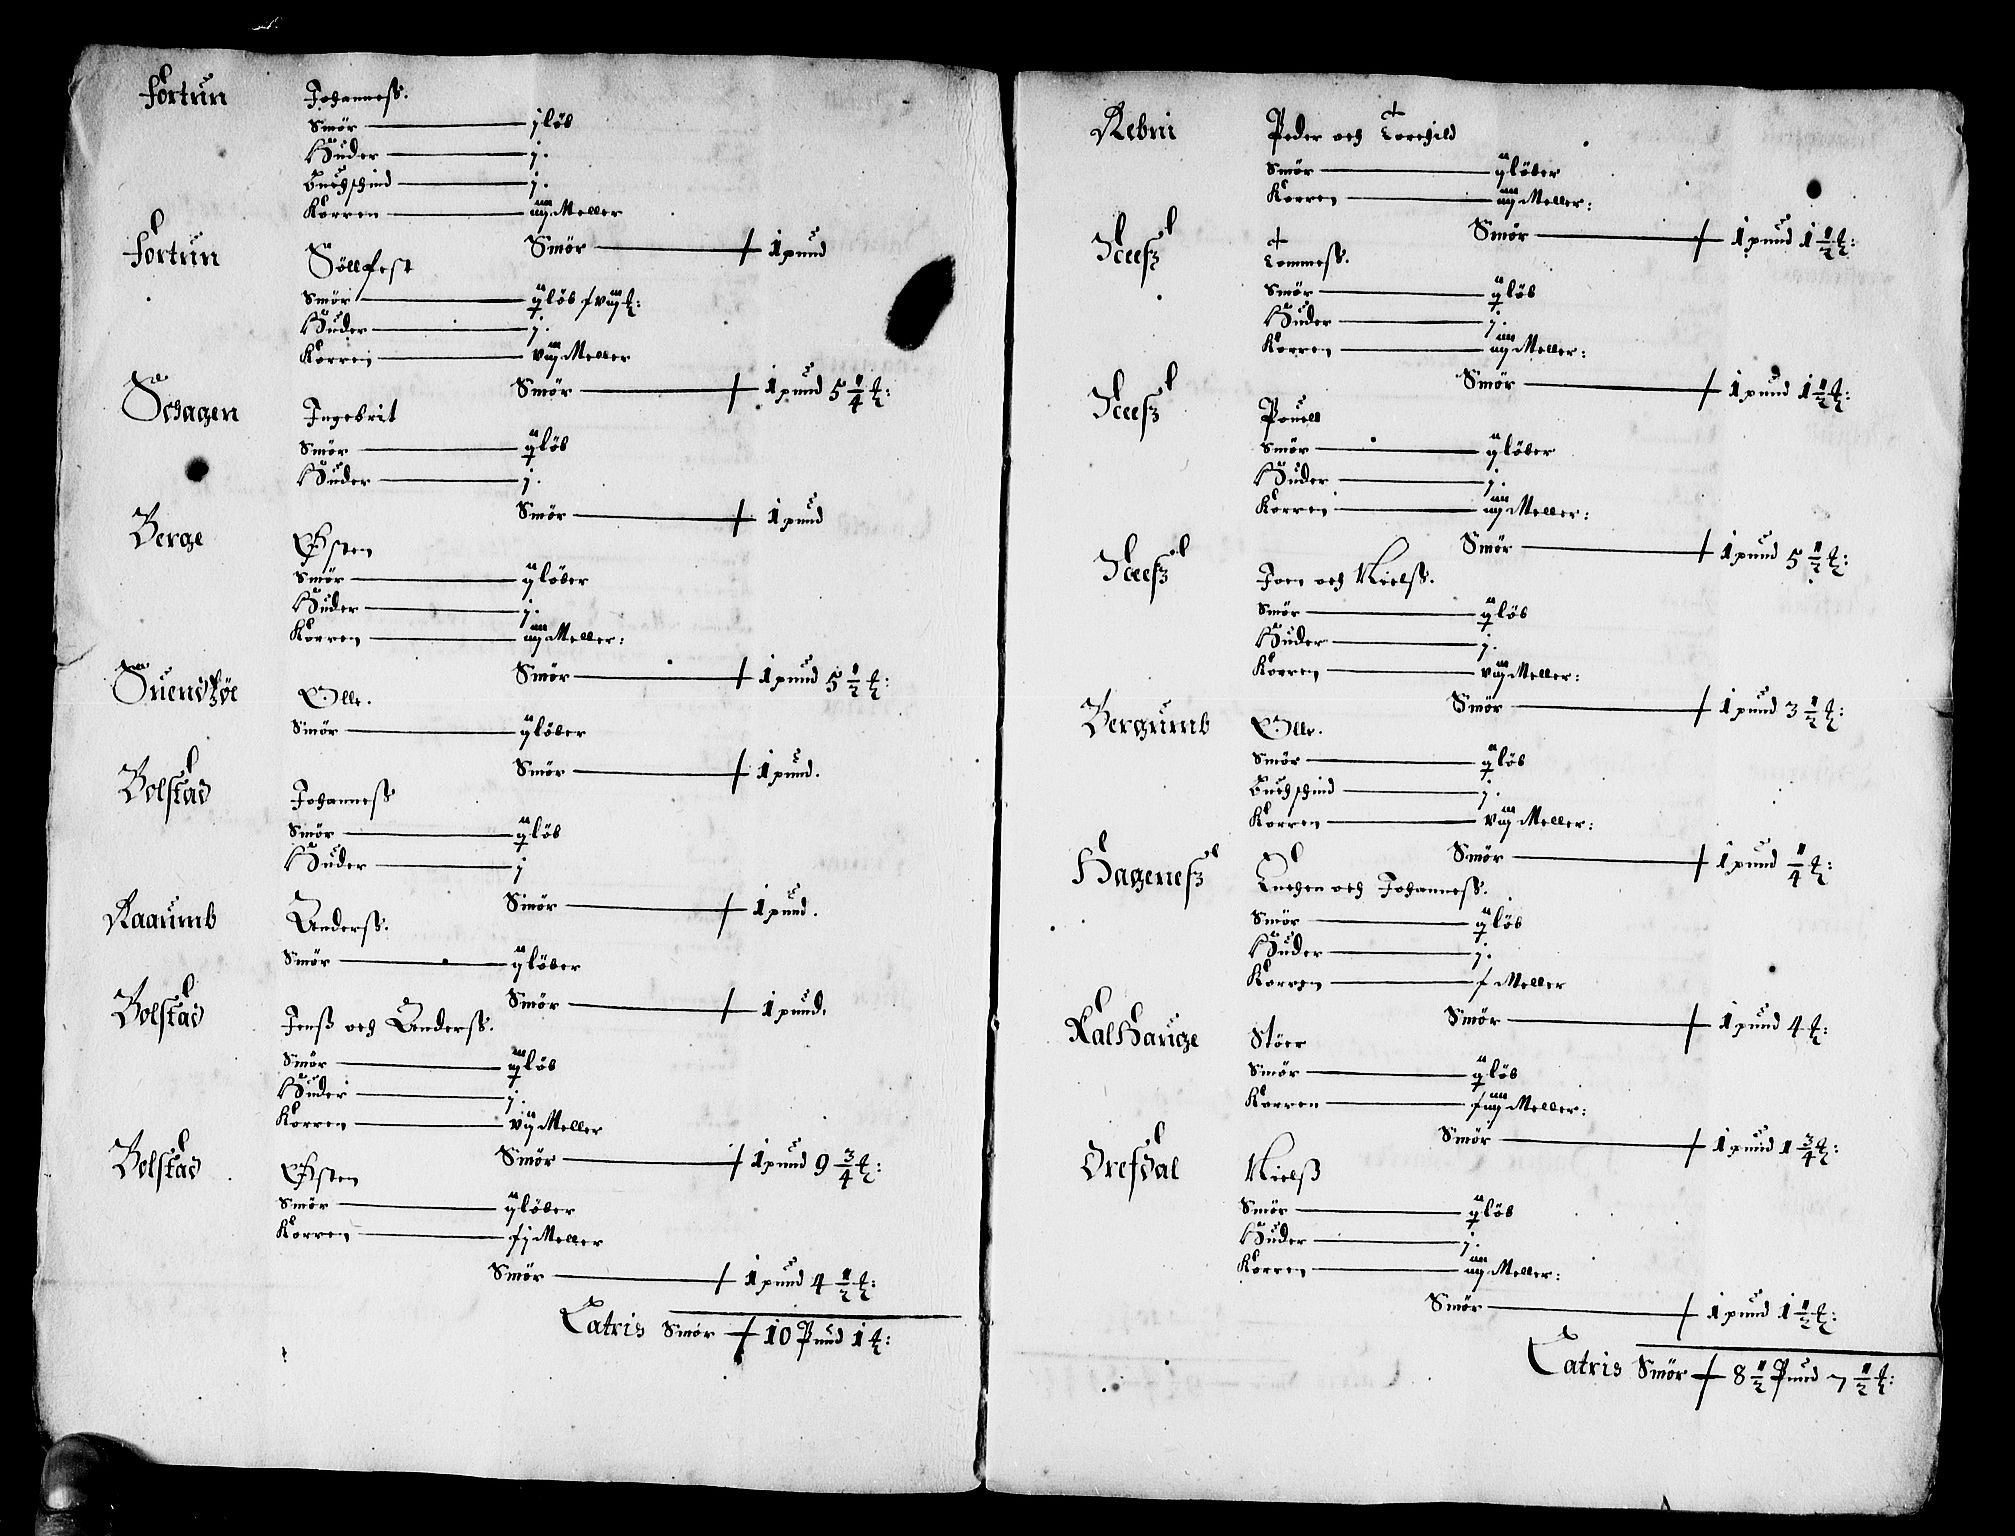 Fortun Johanness.
Smör — j löb
Huder — j.
Buchschind — j.
Korren — iiij Meller
Smör — 1 pund
Fortun Söllfest
Smör — ij löb
Huder — j.
Korren — viij Meller
Smör — 1 pund 5 1/4 ℔:
Schagen Ingebrit
Smör — ij löb
Huder — j.
Smör — 1 pund
Berge Østen
Smör — ij löber
Huder — j.
Korren — iiij Meller:
Smör — 1 pund 5 1/2 ℔:
Olle.
Smör — ij löber
Smör — 1 pund.
Bolstad Johanness
Smör — ij löb
Huder — j
Smör — 1 pund.
Raaumb Anderss.
Smör — ij löber
Smör — 1 pund.
Bolstad Jenß och Anderss.
Smör — iij löb
Huder — j.
Korren — vij Meller
Smör — 1 pund 9 3/4 ℔:
Bolstad Østen
Smör — ij löber
Korren — Meller
Smör — 1 pund 4 1/2 ℔:
Latris Smör — 10 Pund 1 ℔:
Rebni Peder och Torchild
Smör — ij löber
Korren — iiij Meller:
Smör — 1 pund 1 1/2 ℔:
Tommess.
Smör — ij löb
Huder — j.
Korren — iiij Meller:
Smör — 1 pund 1 1/2 ℔:
Pouell
Smör — ij löber
Huder — j.
Korren — iiij Meller:
Smör — 1 pund 5 1/2 ℔:
Joen och Nielss.
Smör — ij löb
Huder — j.
Korren — viij Meller:
Smör — 1 pund 3 1/2 ℔:
Bergumb Olle.
Smör — ij löb
Buchschind — j.
Korren — viij Meller:
Smör — 1 pund 1/4 ℔:
Hageneß och Johanness.
Smör — ij löb
Huder — j.
Korren — Meller
Smör — 1 pund 4 ℔:
Kalhauge Stöer
Smör — ij löb
Korren — Meller:
Smör — 1 pund 1 3/4 ℔:
Orefdal Nielß
Smör — ij löb
Huder — j.
Korren — iiij Meller:
Smör — 1 pund 1 1/2 ℔:
Latris Smör — 8 1/2 Pund 7 1/2 ℔: